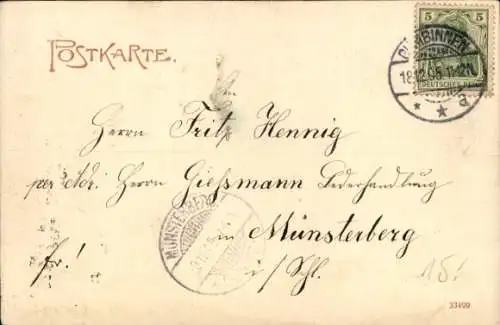 POSTKARTE.
5 5
DEUTSCHES REICH
GUMBINNEN
18.12.05.11-12V.
* * a
An
Herrn Fritz Hennig
per Adr. Herrn Giessmann Lederhandlung
MÜNSTERBERG
in Münsterberg
fr.! i/Schl.
15.-
33499